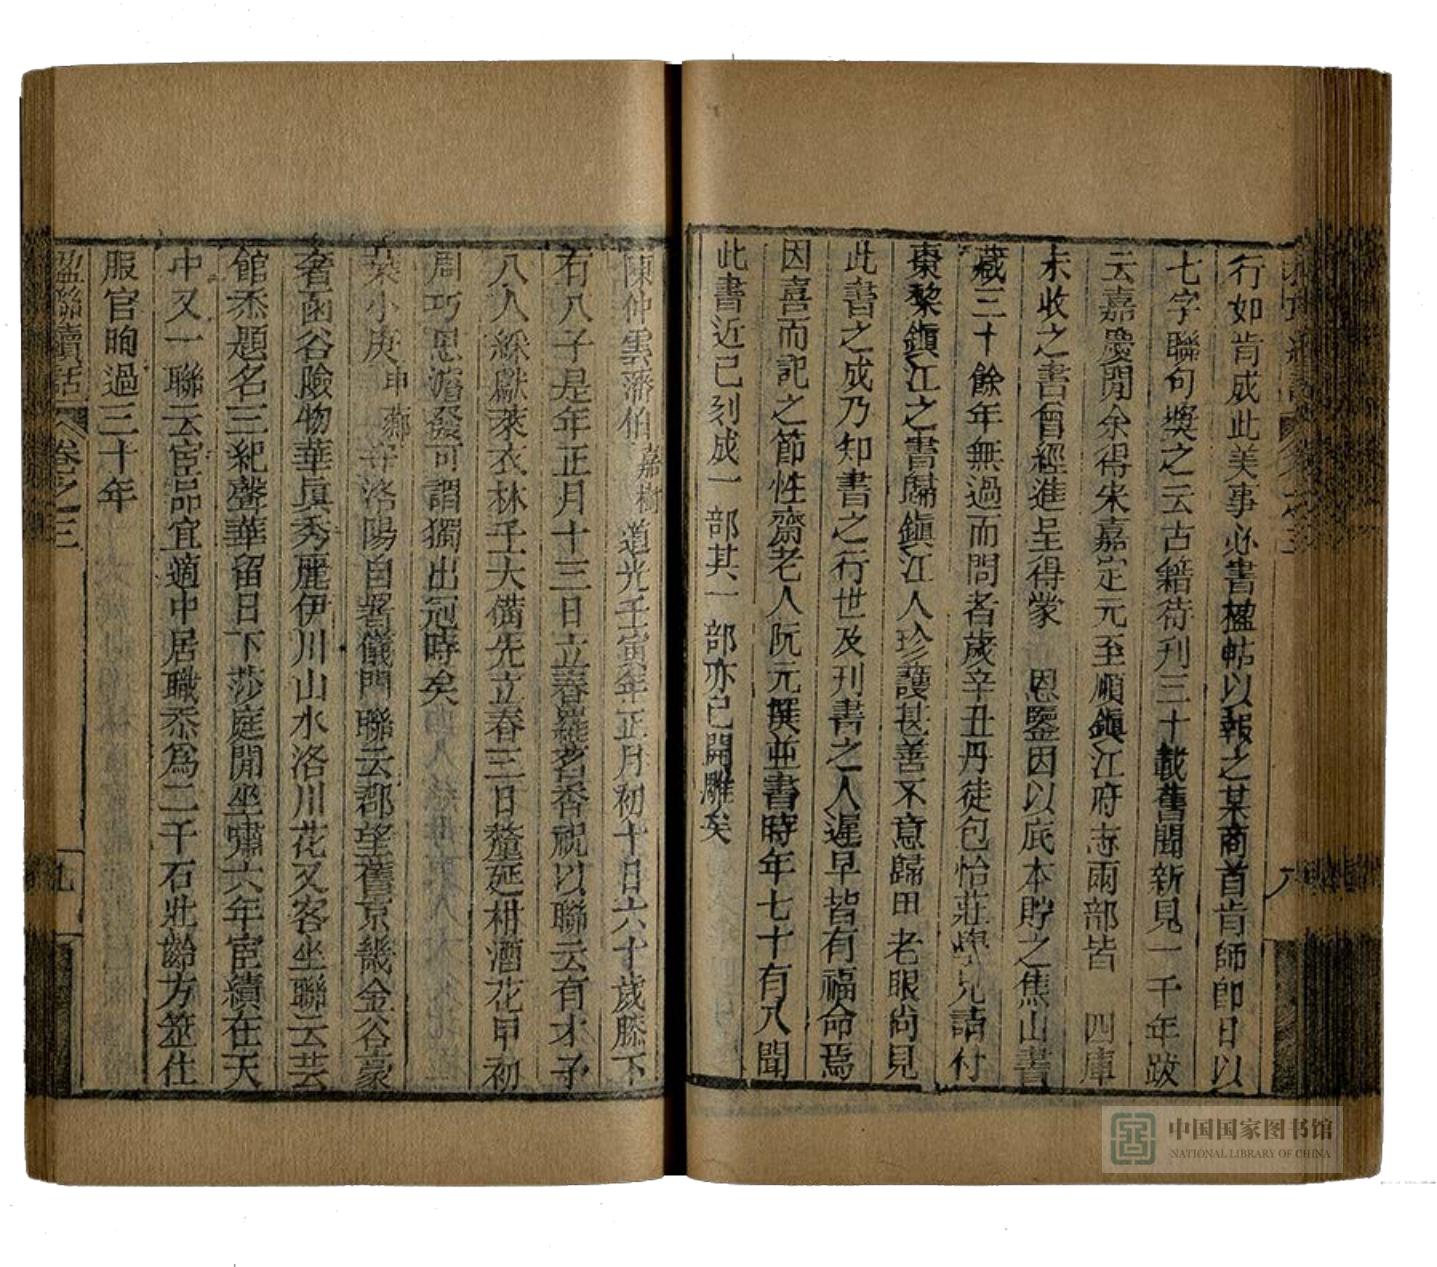 行如肯成此美事必書楹帖以報之某商首肯師即日以
七字聯句獎之云古籍待刊三十載舊聞新見一千年跋
云嘉慶閒余得宋嘉定元至順鎭江府志兩部皆 四庫
未收之書曾經進呈得蒙 恩鑒因以底本貯之焦山書
藏三十餘年無過而問者歲辛丑丹徒包怡莊學兄請付
棗黎鎭江之書歸鎭江人珍護甚善不意歸田老眼尚見
此書之成乃知書之行世及刊書之人遲早皆有福命焉
因喜而記之節性齋老人阮元撰並書時年七十有八聞
此書近已刻成一部其一部亦已開雕矣
陳仲雲藩伯嘉樹道光壬寅年正月初十日六十歲膝下
有八子是年正月十三日立春羅茗香祝以聯云有才子
八人綵獻萊衣林壬大備先立春三日釐延柑酒花甲初
周巧思濬發可謂獨出冠時矣
葉小庚申薌守洛陽自署儀門聯云郡望舊京畿金谷豪
奢函谷險物華眞秀麗伊川山水洛川花又客坐聯云芸
館忝題名三紀聲華留日下莎庭閒坐嘯六年宦績在天
中又一聯云宦品宜適中居職忝爲二千石壯齡方筮仕
服官眴過三十年
楹聯續話 卷之三 九
中国国家图书馆
NATIONAL LIBRARY OF CHINA